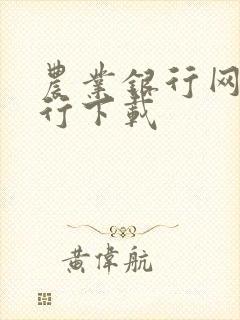 農業銀行网
行下載
黄偉航